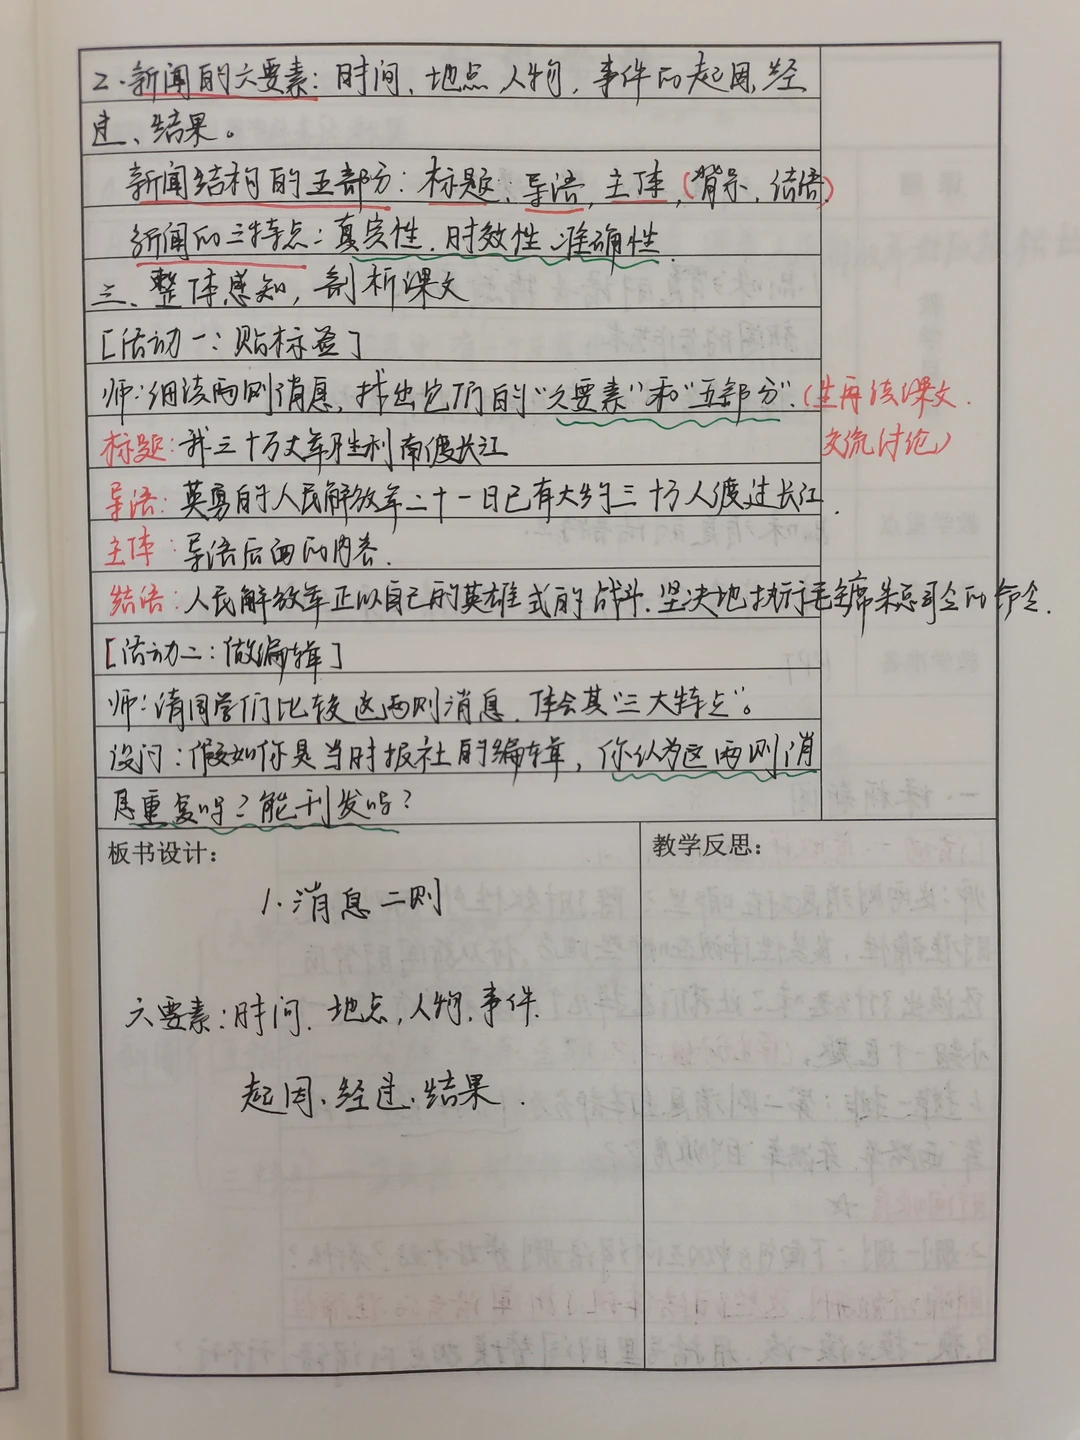 2.新闻的六要素：时间、地点、人物，事件的起因、经
过、结果。
新闻结构的五部分：标题、导语、主体、(背景、结语)
新闻的三特点：真实性、时效性、准确性.
三、整体感知，剖析课文
[活动一：贴标签]
师：细读两则消息，找出它们的“六要素”和“五部分”. (生再读课文.
交流讨论)
标题：我三十万大军胜利南渡长江
导语：英勇的人民解放军二十一日已有大约三十万人渡过长江.
主体：导语后面的内容.
结语：人民解放军正以自己的英雄式的战斗.坚决地执行毛主席朱总司令的命令.
[活动二：做编辑]
师：请同学们比较这两则消息.体会其“三大特点”。
设问：假如你是当时报社的编辑，你认为这两则消
息重复吗？能刊发吗？
板书设计：
1.消息二则
六要素：时间、地点，人物，事件.
起因、经过、结果.
教学反思：